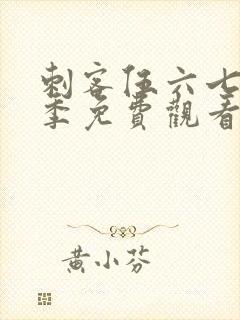 刺客伍六七
季免費觀看
黄小芬